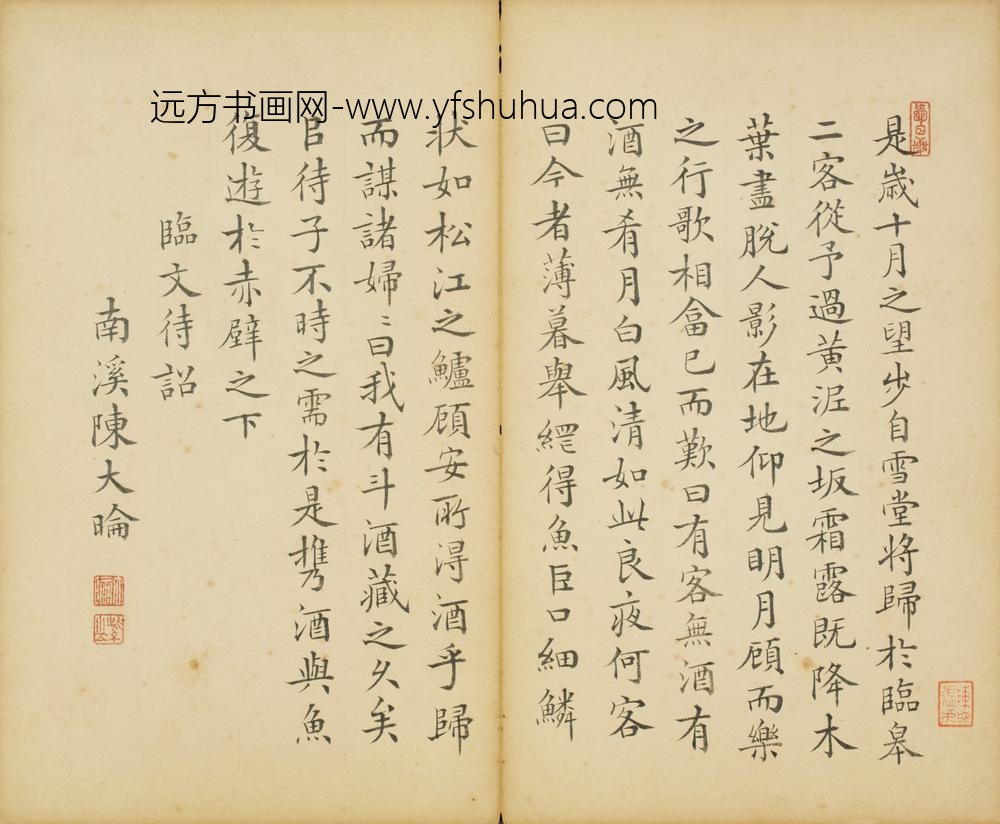 远方书画网-www.yfshuhua.com
是歲十月之望步自雪堂將歸於臨皋
二客從予過黃泥之坂霜露既降木
葉盡脫人影在地仰見明月顧而樂
之行歌相畣已而歎曰有客無酒有
酒無肴月白風清如此良夜何客
曰今者薄暮舉網得魚巨口細鱗
狀如松江之鱸顧安所得酒乎歸
而謀諸婦〻曰我有斗酒藏之久矣
㠯待子不時之需於是攜酒與魚
復遊於赤壁之下
臨文待詔
南溪陳大㑮